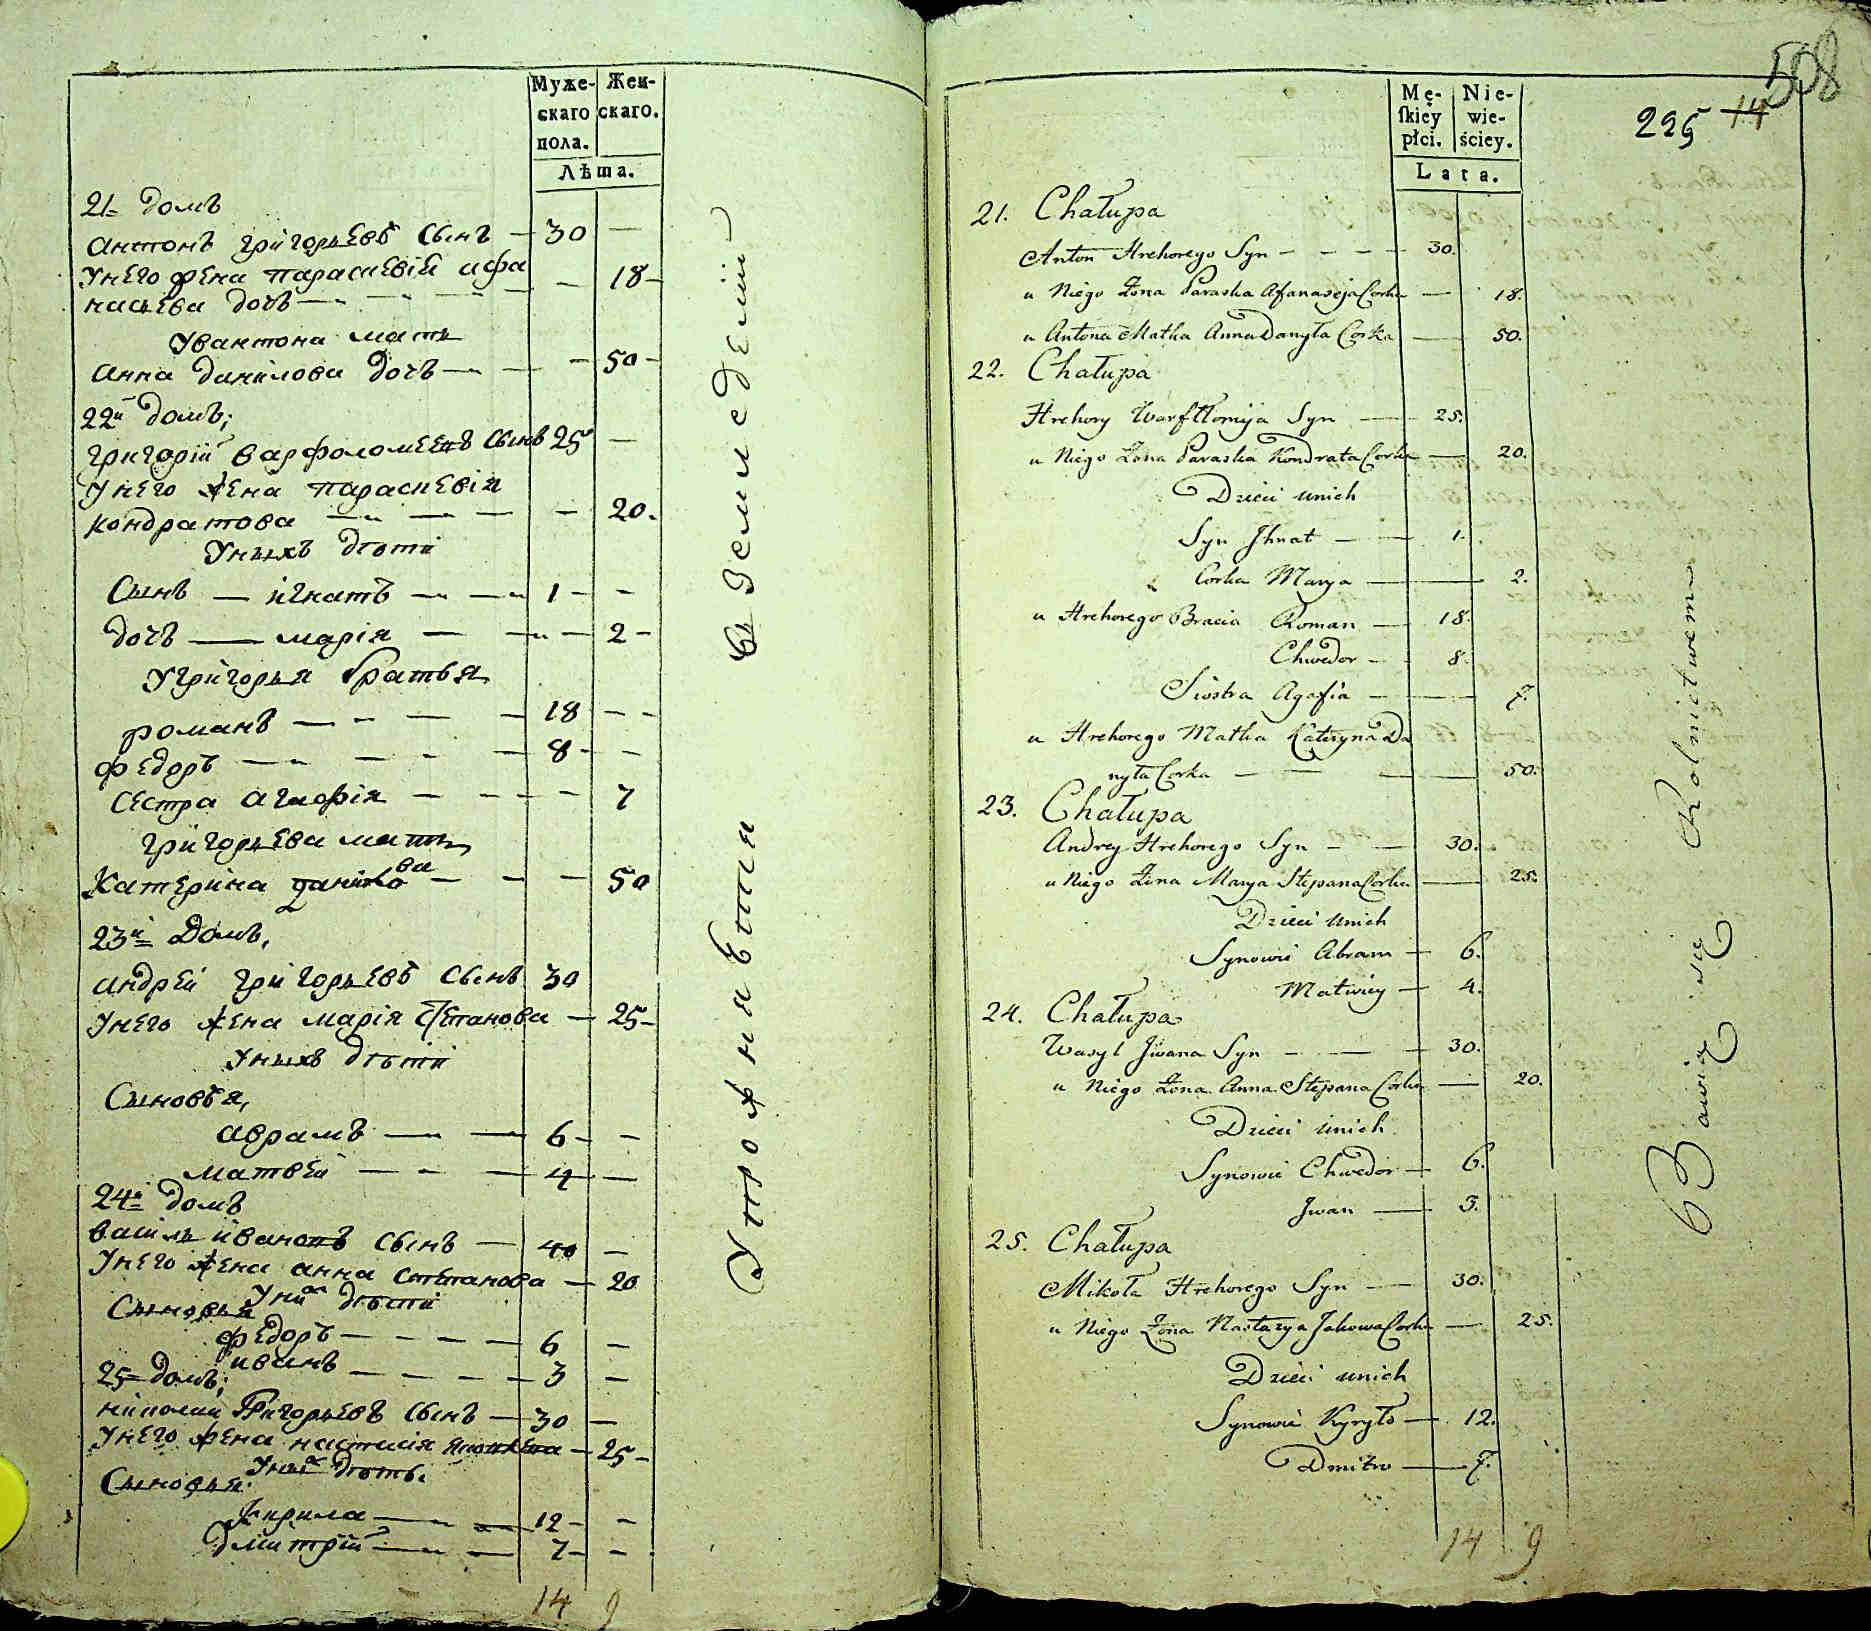 Муже- Жен-
скаго скаго.
пола.
Лѣта.
21й домъ
антонъ григорьевъ сынъ — 30 —
унего жена параскевія афа
насьева дочь — — 18 —
увантона мать
анна данилова дочь — — 50 —
22й домъ;
григорій варфоломеевъ сынъ 25 —
унего жена параскевія
кондратова — — 20.
уныхъ дѣти
сынъ — игнатъ — 1 — —
дочь — марія — — 2 —
угригорья братья
романъ — 18 — —
федоръ — 8 — —
сестра агафія — — 7
григорьева мать
катерина данилова — — 50
23й Домъ,
андрей григорьевъ сынъ 30
унего жена марія степанова — 25 —
уныхъ дѣти
Сыновья,
аврамъ — 6 — —
матвей — 4 —
24й домъ
василь ивановъ сынъ — 40 —
унего жена анна степанова — 20
уныхъ дѣти
Сыновья
федоръ — 6 —
иванъ — 3 —
25й домъ;
николай Григорьевъ сынъ — 30 —
унего жена настасія яковлева — 25 —
уныхъ дѣти
Сыновья.
кирила — 12 — —
дмитрій — 7 — —
14 9
Упражняются в земледеліи
508
225 14
Mę- Nie-
ſkiey wie-
płci. ściey.
Lata.
21. Chałupa
Anton Hrehorego Syn — — — 30.
u Niego Żona Paraska Afanaseja Corka — 18.
u Antona Matka Anna Danyła Corka — 50.
22. Chałupa
Hrehory Warfłłomija Syn — 25.
u Niego Żona Paraska Kondrata Corka — 20.
Dzieci unich
Syn Jhnat — 1.
Corka Marya — 2.
u Hrehorego Bracia Roman — 18.
Chwedor — 8.
Siostra Agafia — 7.
u Hrehorego Matka Kateryna Da
nyła Corka — — 50.
23. Chałupa
Andrey Hrehorego Syn — — 30.
u Niego Żona Marya Stepana Corka — 25.
Dzieci unich
Synowie Abram — 6.
Matwiey — 4.
24. Chałupa
Wasyl Jwana Syn — — 30.
u Niego Żona Anna Stepana Corka — 20.
Dzieci unich
Synowie Chwedor — 6.
Jwan — 3.
25. Chałupa
Mikoła Hrehorego Syn — 30.
u Niego Żona Nastazya Jakowa Corka — 25.
Dzieci unich
Synowie Kyryło — 12.
Dmitro — 7.
14 9
Bawią się Rolnictwem